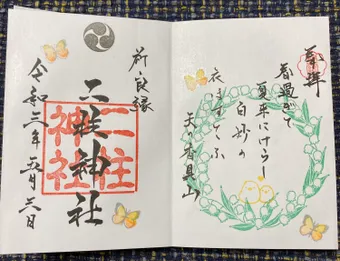 奉拝
春過ぎて
夏来にけらし
白妙の
衣ほすてふ
天の香具山
祈良縁
二柱神社
二柱神社
令和三年五月三日